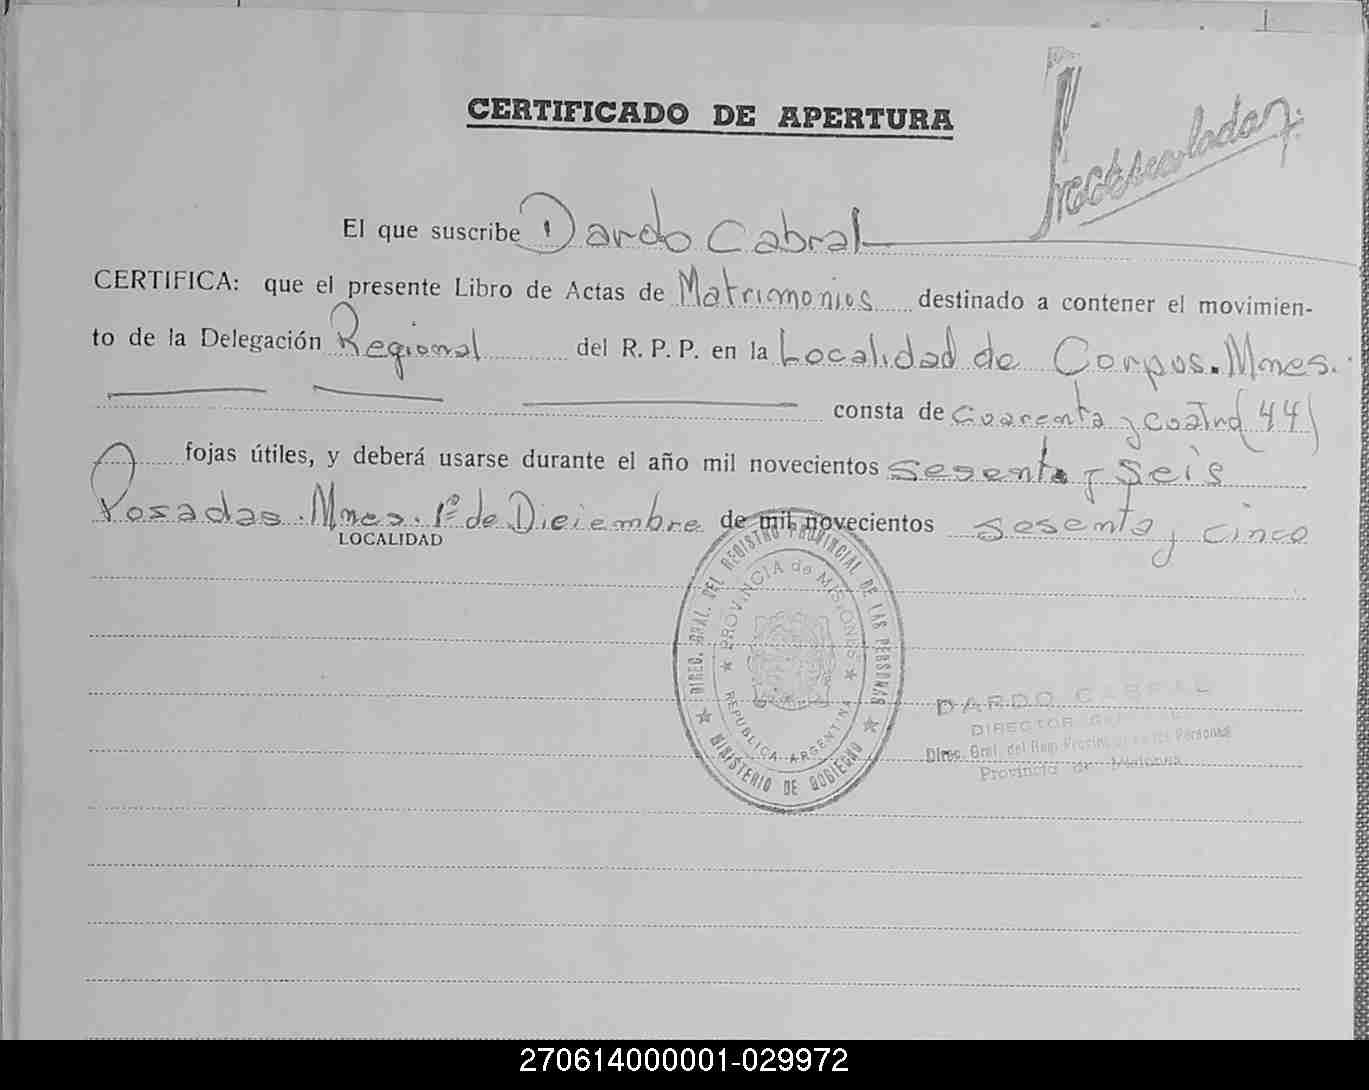 CERTIFICADO DE APERTURA
El que suscribe Dardo Cabral
CERTIFICA: que el presente Libro de Actas de Matrimonios destinado a contener el movimien-
to de la Delegación Regional del R. P. P. en la Localidad de Corpus. Mnes.
consta de Cuarenta y cuatro (44)
fojas útiles, y deberá usarse durante el año mil novecientos sesenta y seis
Posadas. Mnes. 1º de Diciembre de mil novecientos sesenta y cinco
LOCALIDAD
DIREC. GRAL. DEL REGISTRO PROVINCIAL DE LAS PERSONAS
PROVINCIA de MISIONES
REPUBLICA ARGENTINA
MINISTERIO DE GOBIERNO
DARDO CABRAL
DIRECTOR
Direc. Gral. del Reg. Provincial de las Personas
Provincia de Misiones
270614000001-029972